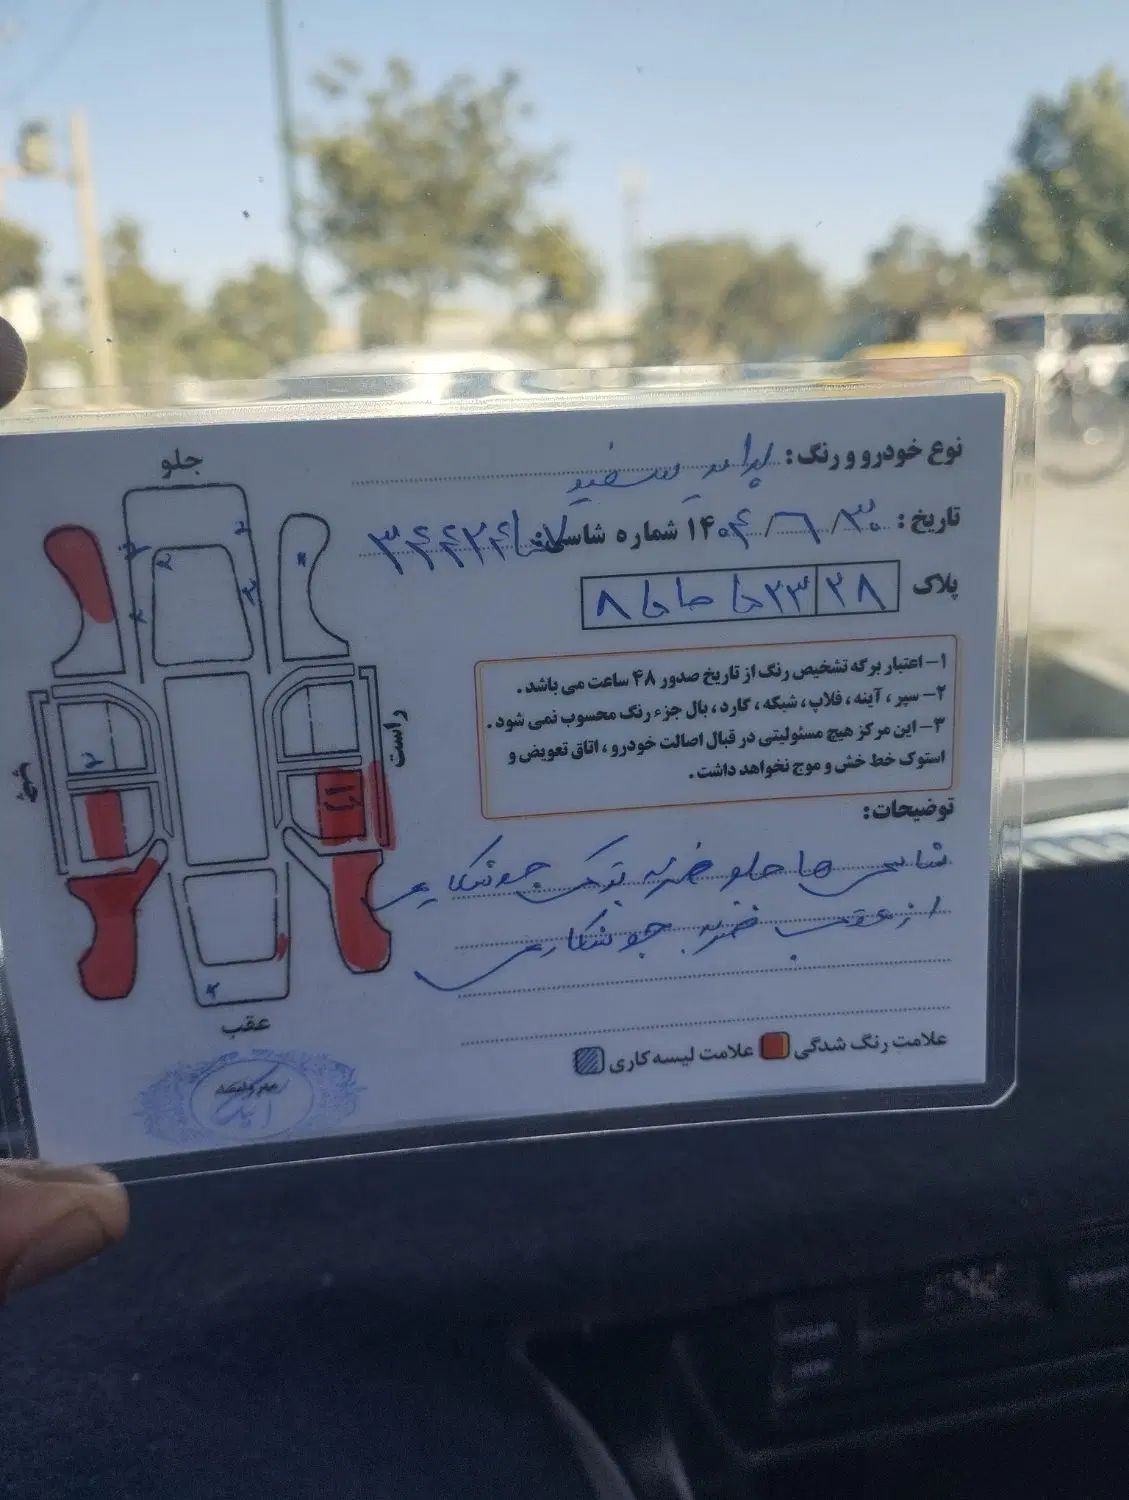 جلو
نوع خودرو و رنگ: پراید سفید
تاریخ: ۱۴۰۴/۶/۳۰ شماره شاسی:
پلاک
۲۸
راست
چپ
۱- اعتبار برگه تشخیص رنگ از تاریخ صدور ۴۸ ساعت می باشد.
۲- سپر، آینه، فلاپ، شبکه، گارد، بال جزء رنگ محسوب نمی شود.
۳- این مرکز هیچ مسئولیتی در قبال اصالت خودرو، اتاق تعویض و
استوک خط خش و موج نخواهد داشت.
توضیحات:
شاسی ها جلو ضربه ترک جوشکاری
از عقب ضربه جوشکاری
عقب
علامت رنگ شدگی علامت لیسه کاری